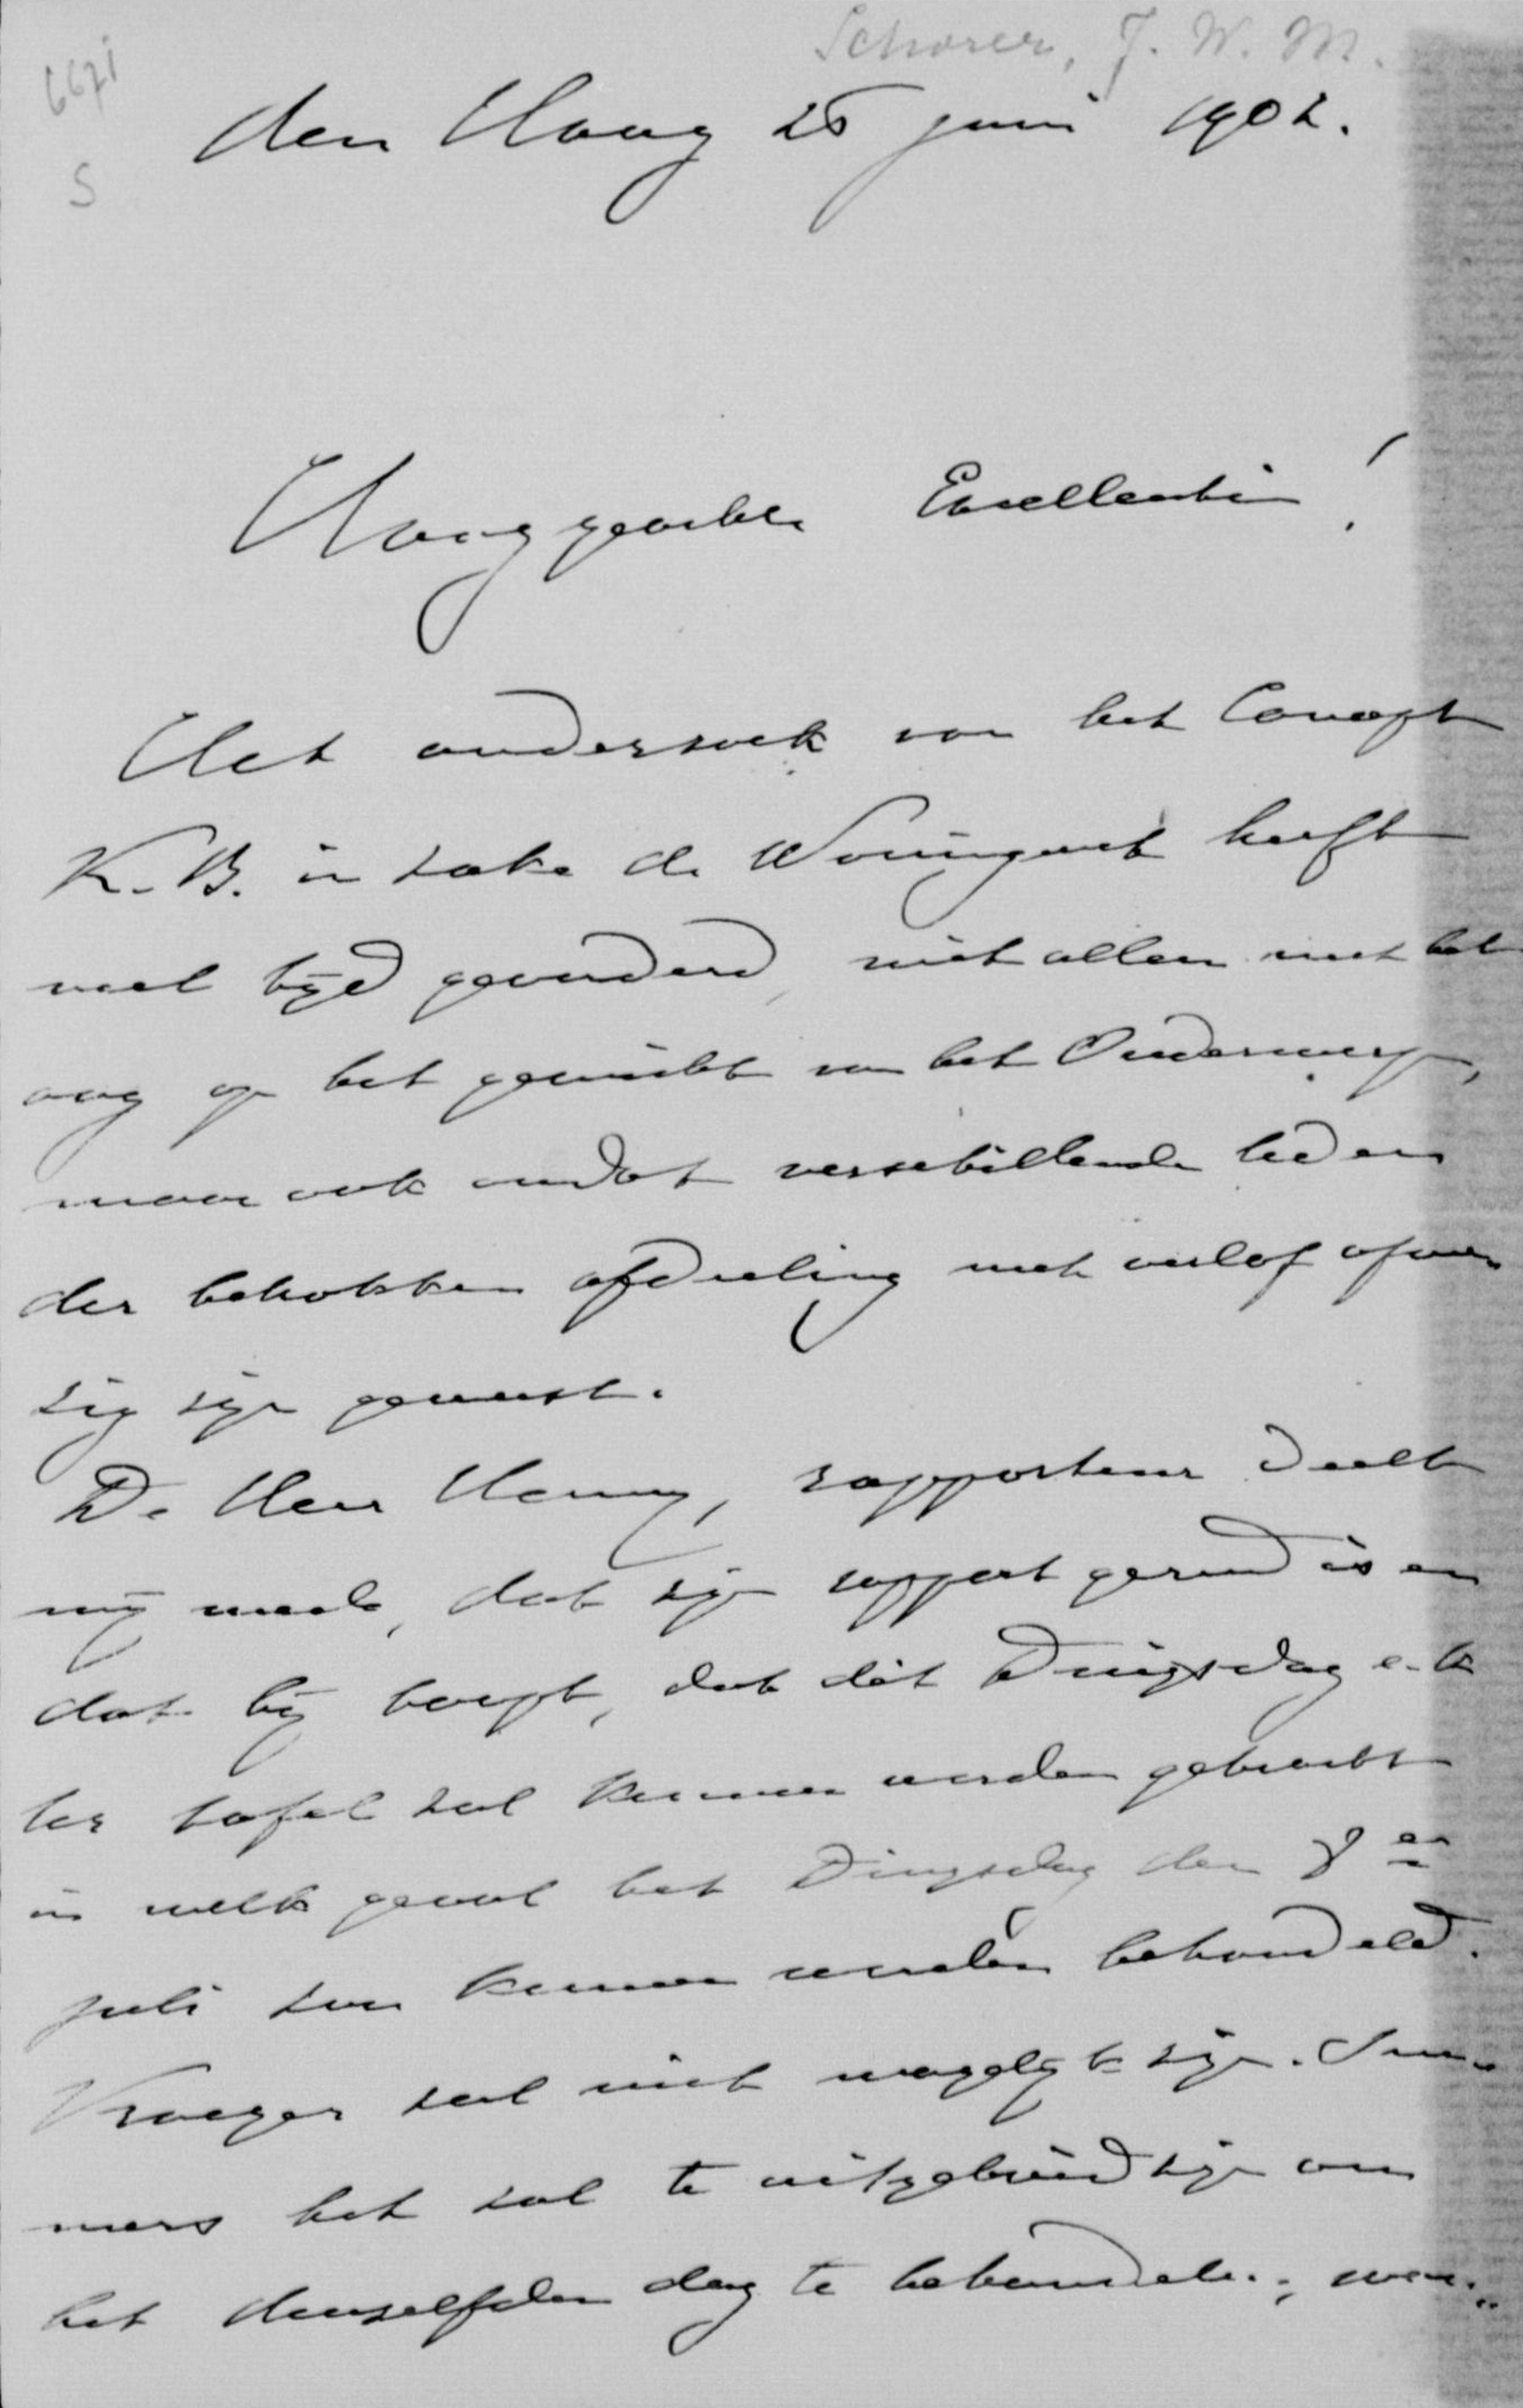 Schorer, J. W. M.
6671
S
den Haag 28 juni 1902.
Hooggeachte Excellentie!
Het onderzoek van het Concept
K.B. in zake de Woningwet heeft
veel tijd gevorderd, niet alleen met het
oog op het gewicht van het Onderwerp,
maar ook omdat verschillende leden
der betrokken afdeeling met verlof afwe
zig zijn geweest.
De Heer Henny, rapporteur deelt
mij mede, dat zijn rapport gereed is en
dat hij hoopt, dat dit Dingsdag e.k.
ter tafel zal kunnen worden gebracht
in welk geval het Dingsdag den 8en
juli zou kunnen worden behandeld.
Vroeger zal niet mogelijk zijn. Im-
mers het zal te uitgebreid zijn om
het denzelfden dag te behandelen;